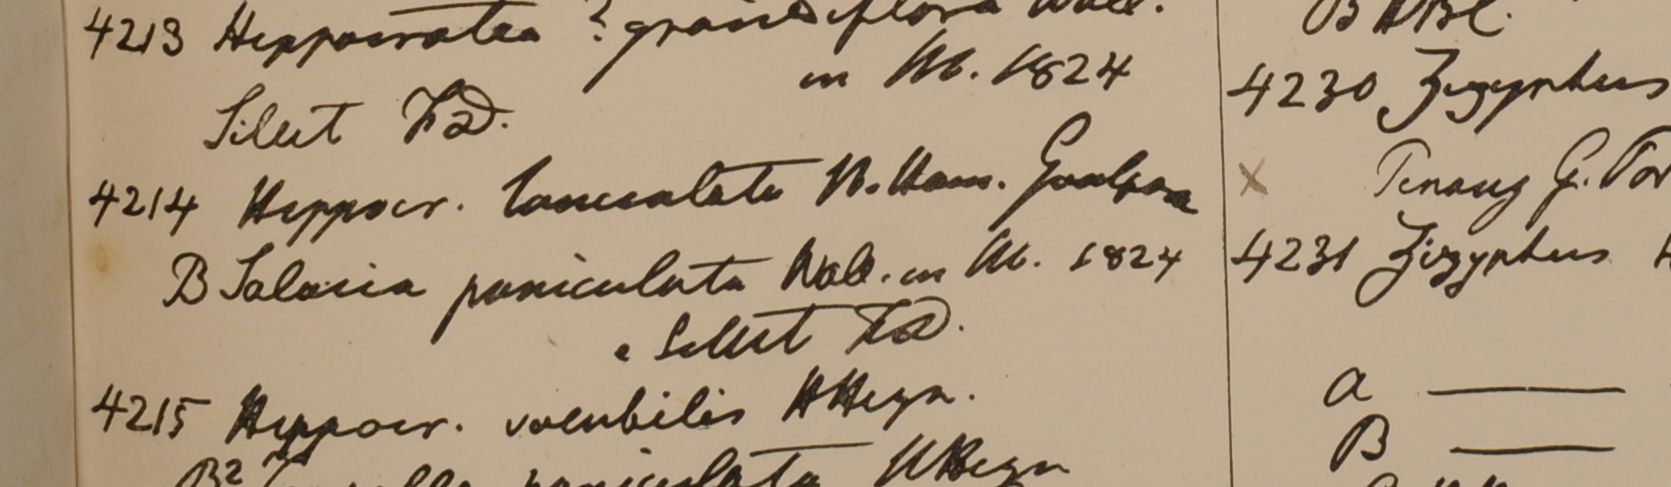 4213 Hippocratea ? grandiflora Wall.
in M. 1824
Silut F.D.
4214 Hippocr. lanceolata B. Ham. Goalpara
B Salacia paniculata Wall. in M. 1824
Silut F.D.
4215 Hippocr. volubilis HHeyn.
B2 paniculata HHeyn
B HBC.
4230 Zizyphus
× Penang G. Por
4231 Zizyphus
a —
B —